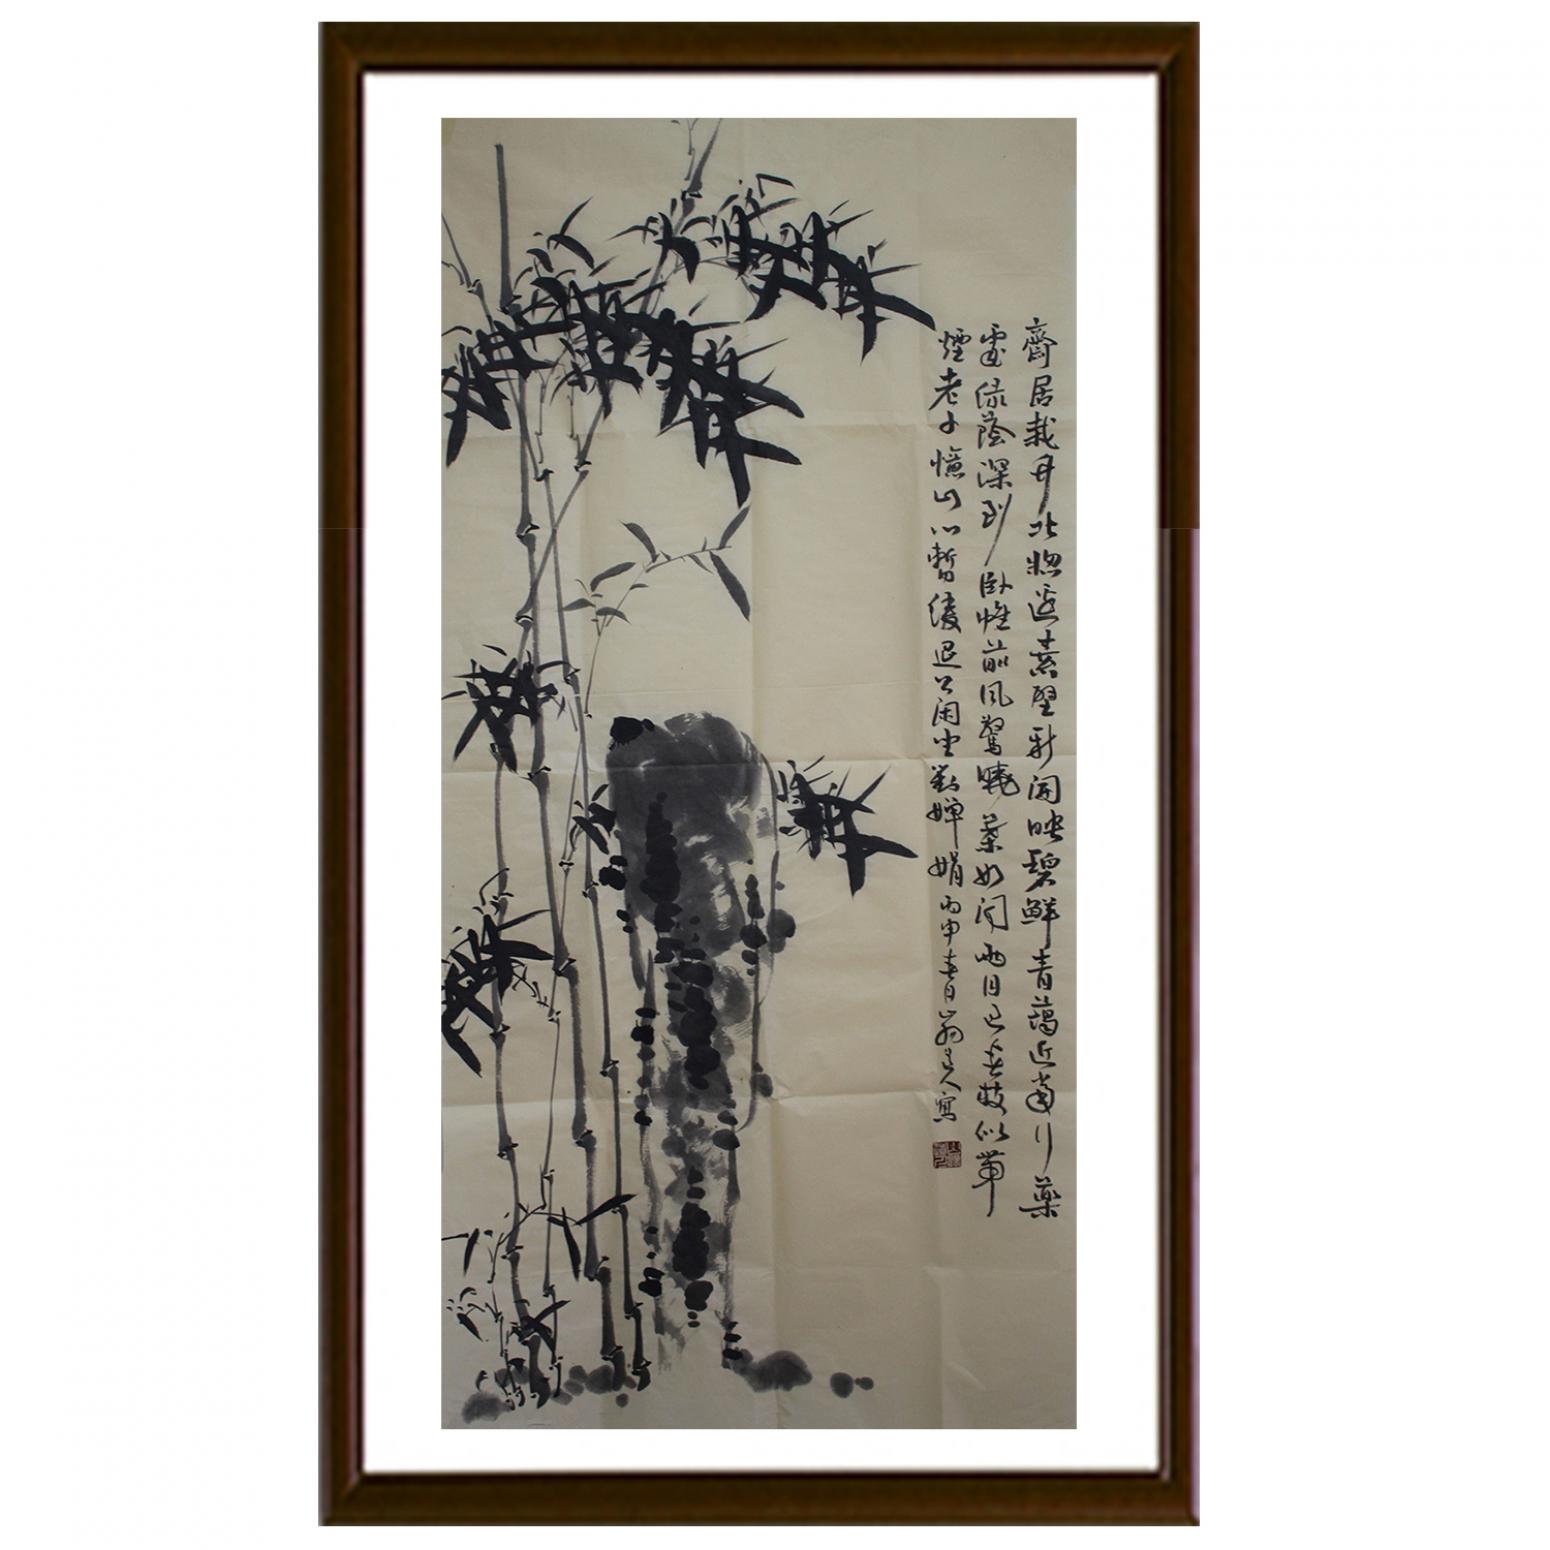 齋居栽竹北窗邊素壁新開映碧鮮青藹近當行藥
處綠蔭深到臥帷前風驚曉葉如聞雨月過春枝似帶
煙老子憶山心暫緩退公閑坐對嬋娟丙申春月寫